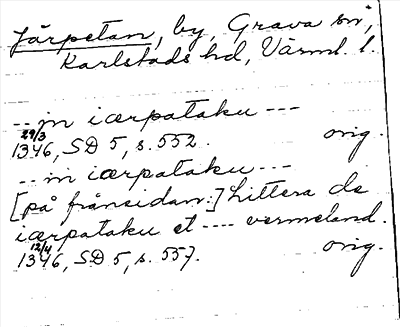 Järpetan, by, Grava sn,
Karlstads hd, Värml. l.
--- in iærpataku ---
29/3 1346, SD 5, s. 552. orig.
--- in iærpataku ---
[på frånsidan:] Littera de
iærpataku et ---- vermeland.
12/4 1346, SD 5, s. 557. orig.